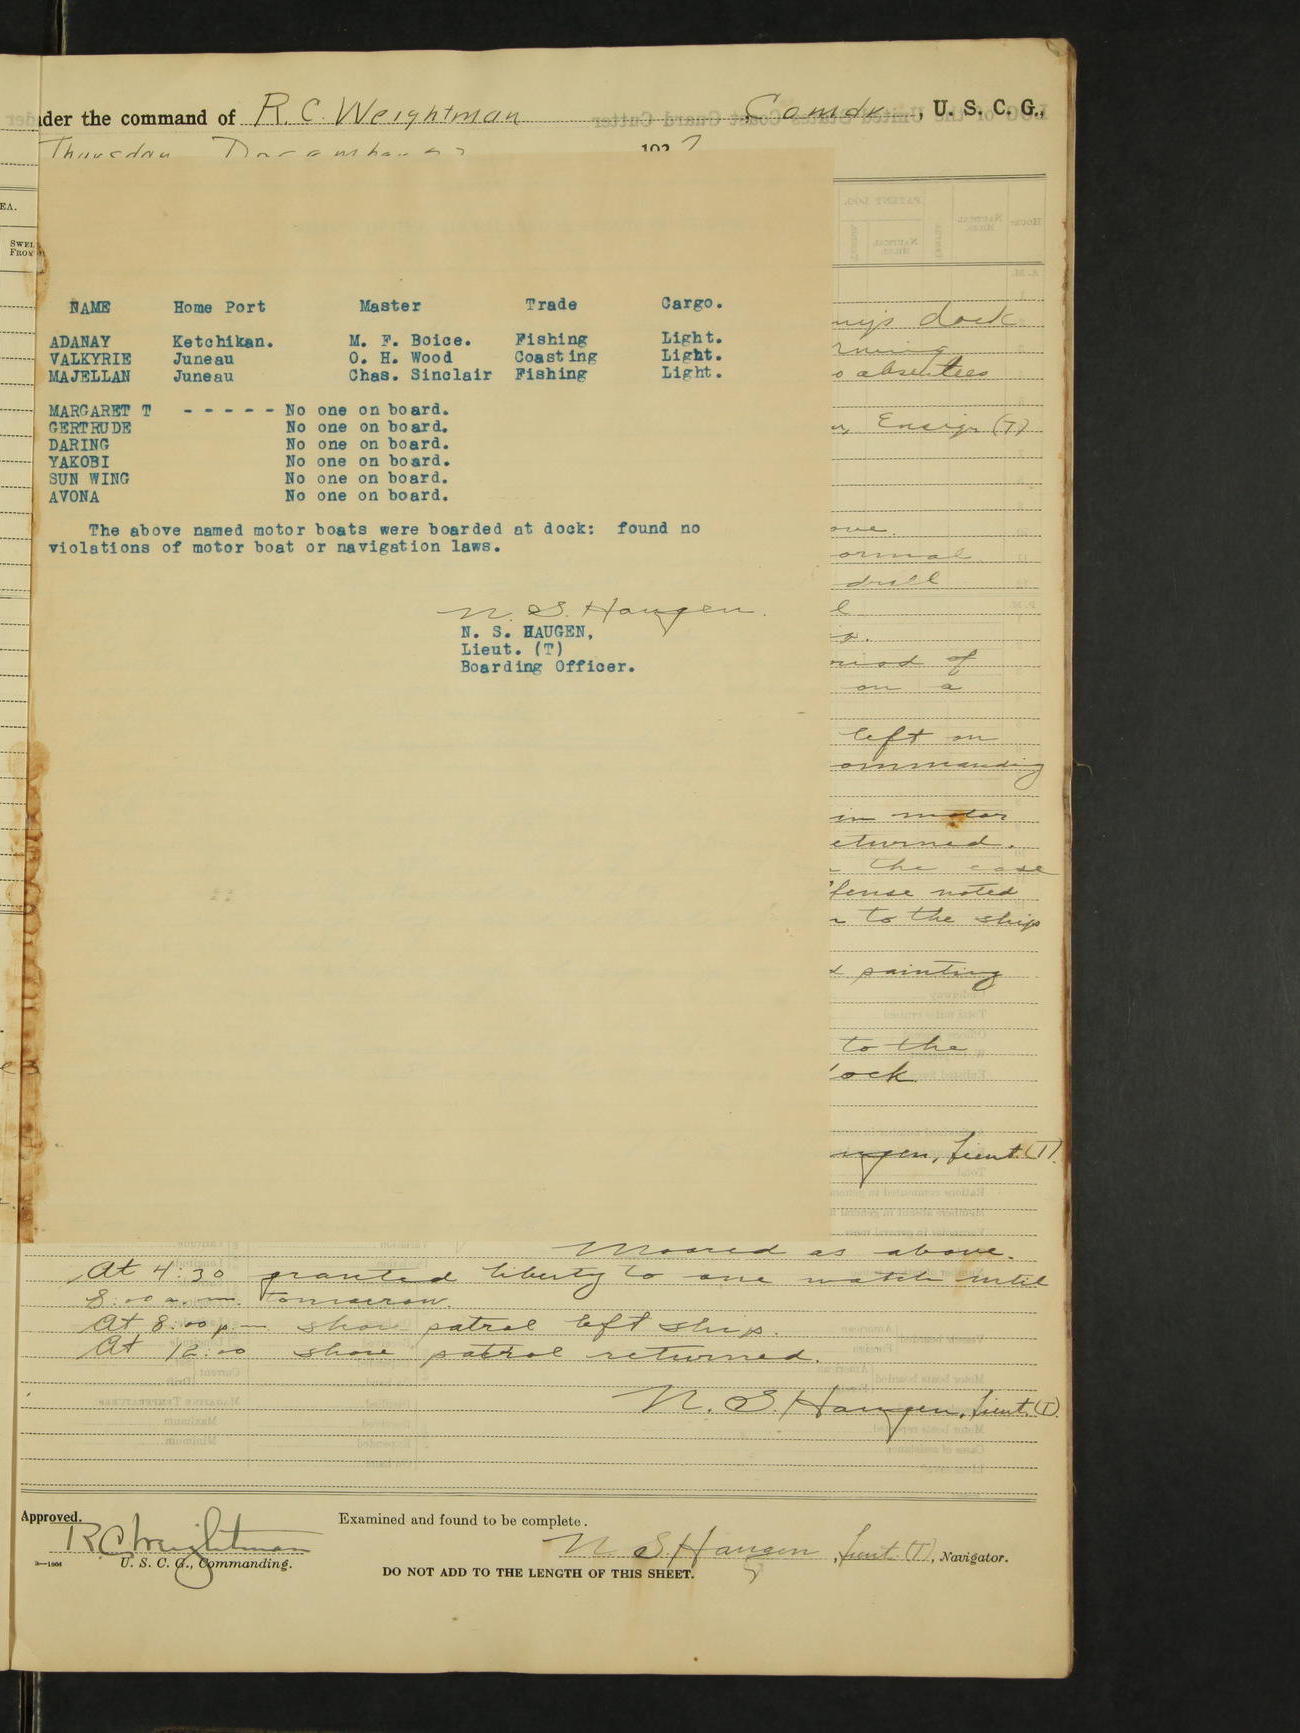 under the command of R. C. Weightman Comdr., U. S. C. G.,
Thursday December 192
EA.
SWEL
FROM
NAME Home Port Master Trade Cargo.
ADANAY Ketchikan. M. F. Boice. Fishing Light.
VALKYRIE Juneau O. H. Wood Coasting Light.
MAJELLAN Juneau Chas. Sinclair Fishing Light.
MARGARET T - - - - - No one on board.
GERTRUDE No one on board.
DARING No one on board.
YAKOBI No one on board.
SUN WING No one on board.
AVONA No one on board.
The above named motor boats were boarded at dock: found no
violations of motor boat or navigation laws.
N. S. Haugen.
N. S. HAUGEN,
Lieut. (T)
Boarding Officer.
dock
absentees
Ensign (T)
drill
of
on a
left on
ommanding
in motor
eturned.
the case
fense noted
to the ship
painting
to the
ock
ugen, Lieut. (T).
Moored as above.
At 4:30 granted liberty to one watch until
8:00 a.m. tomorrow.
At 8:00 p.m. shore patrol left ship.
At 12:00 shore patrol returned.
N. S. Haugen, Lieut. (T).
Approved.
Examined and found to be complete.
R C Weightman
U. S. C. G., Commanding.
N S Haugen, Lieut. (T), Navigator.
DO NOT ADD TO THE LENGTH OF THIS SHEET.